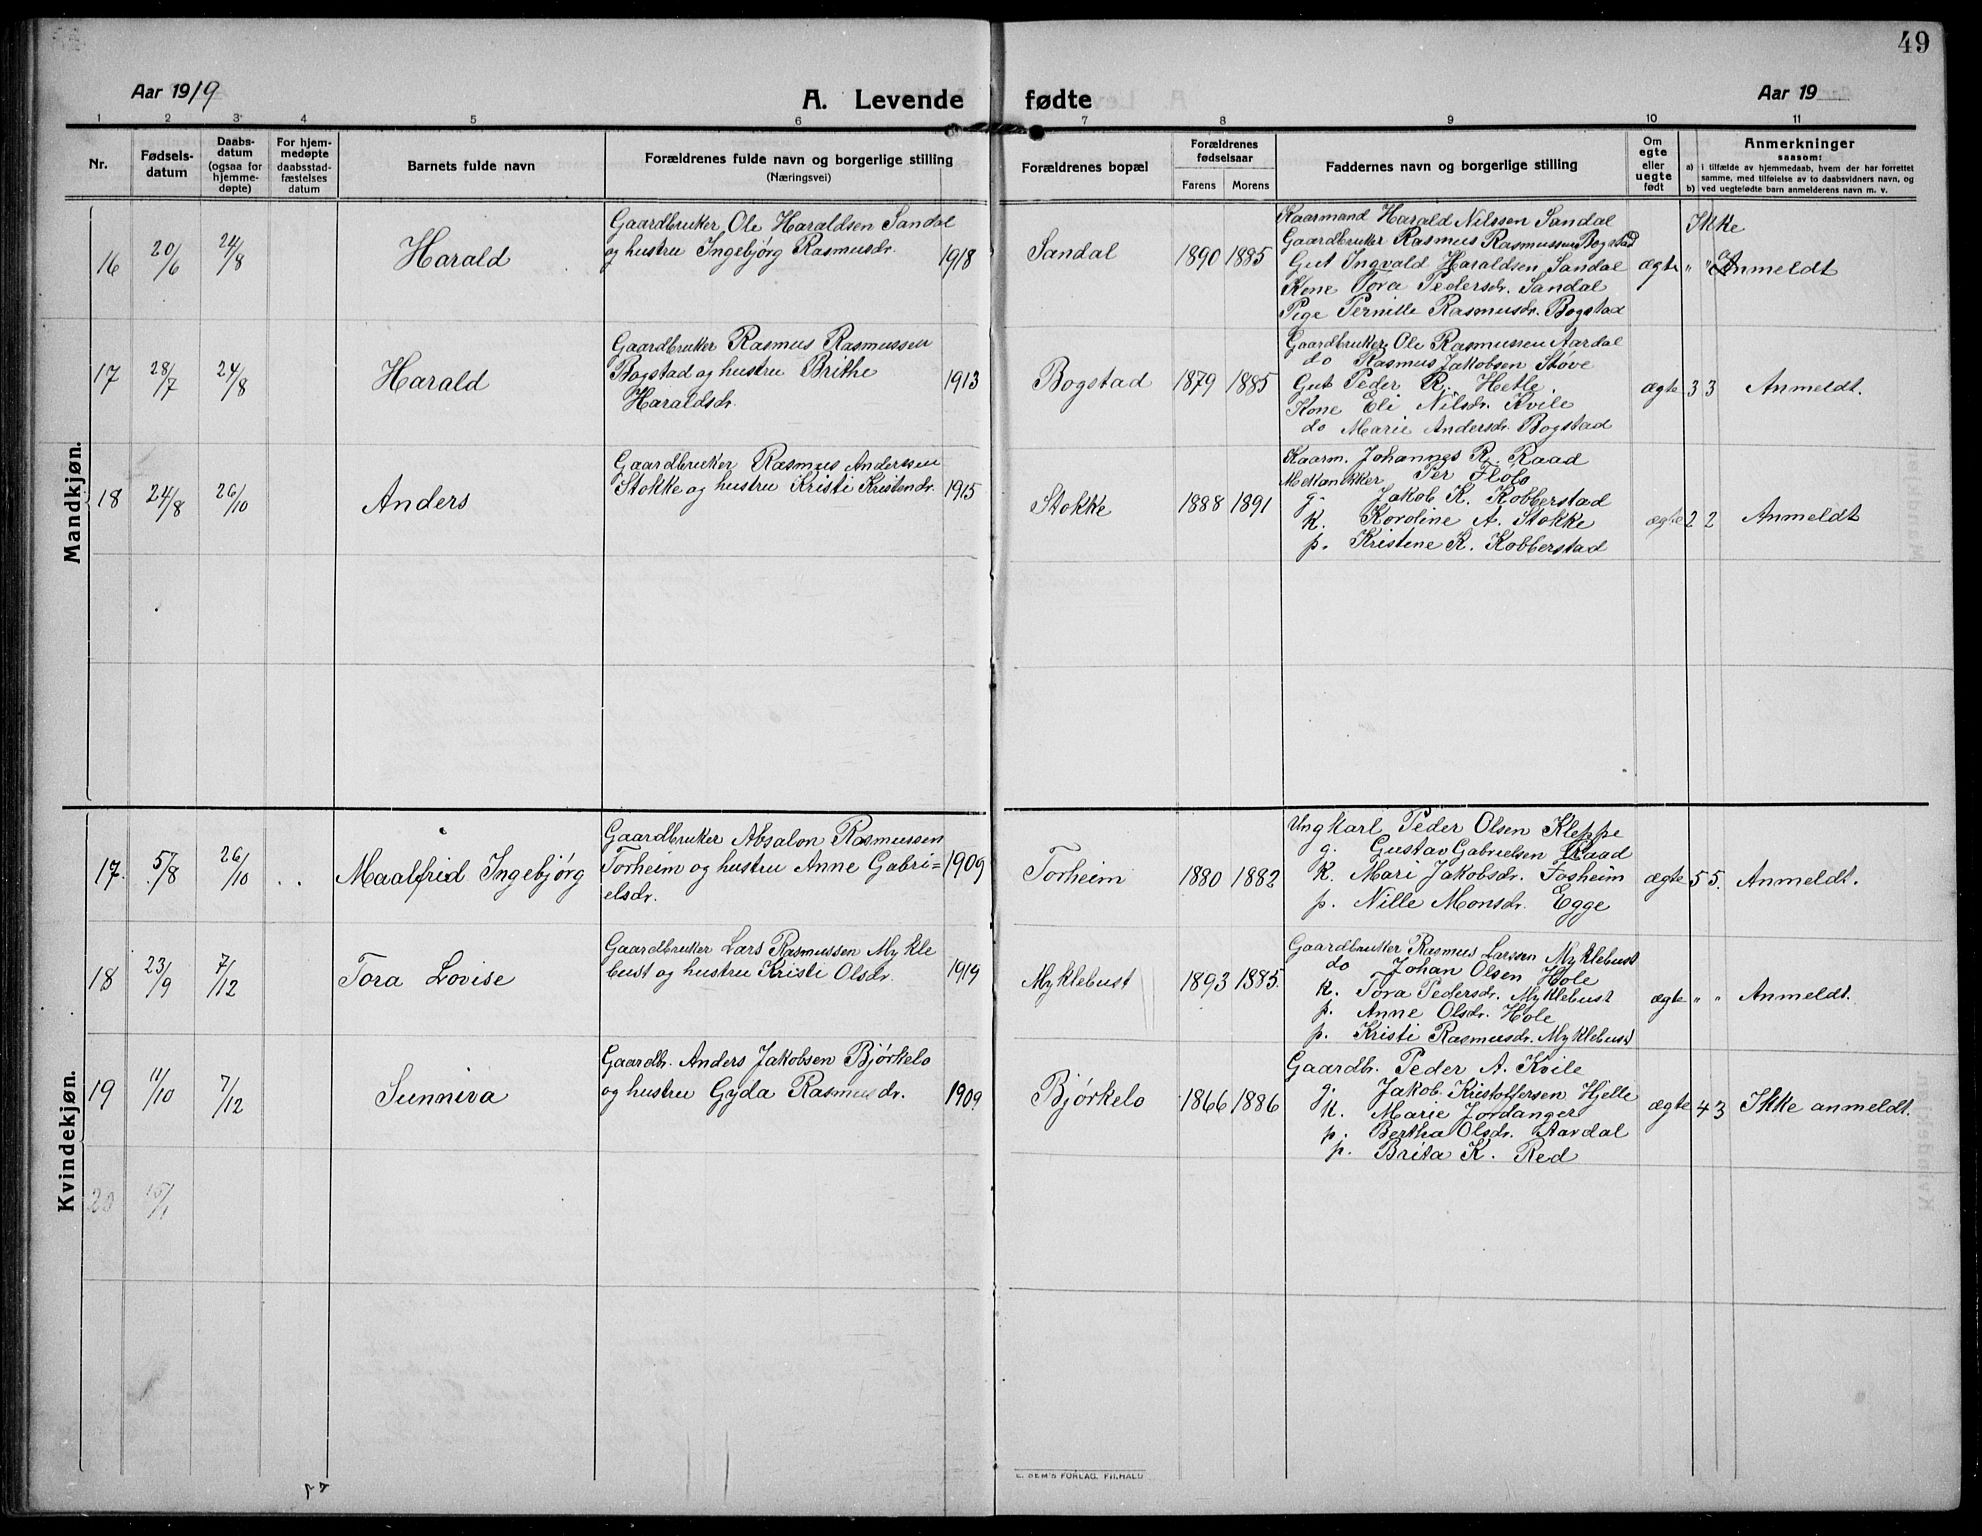 49
Aar 1919
A. Levende fødte
Aar 19
1 2 3 4 5 6 7 8 9 10 11
Nr.
Fødsels-
datum
Daabs-
datum
(ogsaa for
hjemme-
døpte)
For hjem-
medøpte
daabsstad-
fæstelses
datum
Barnets fulde navn
Forældrenes fulde navn og borgerlige stilling
(Næringsvei)
Forældrenes bopæl
Forældrenes
fødselsaar
Farens Morens
Faddernes navn og borgerlige stilling
Om
egte
eller
uegte
født
a)
b)
Anmerkninger
saasom:
i tilfælde av hjemmedaab, hvem der har forrettet
samme, med tilføielse av to daabsvidners navn, og
ved uegtefødte barn anmelderens navn m. v.
Mandkjøn.
16 20/6 24/8 Harald
Gaardbruker Ole Haraldsen Sandal
og hustru Ingebjørg Rasmusdr. 1918
Sandal 1890 1885
Kaarmand Harald Nilssen Sandal
Gaardbruker Rasmus Rasmussen Bogstad
Gut Ingvald Haraldsen Sandal
Kone Tora Pedersdr. Sandal
Pige Pernille Rasmusdr. Bogstad
ægte " "
Ikke
Anmeldt
17 28/7 24/8 Harald
Gaardbruker Rasmus Rasmussen
Bogstad og hustru Brithe 1913
Haraldsdr.
Bogstad 1879 1885
Gaardbruker Ole Rasmussen Aardal
do Rasmus Jakobsen Støve
Gut Peder R. Hetle
Kone Eli Nilsdr. Kvile
do Marie Andersdr. Bogstad
ægte 3 3 Anmeldt.
18 24/8 26/10 Anders
Gaardbruker Rasmus Anderssen
Stokke og hustru Kristi Kristendr. 1915
Stokke 1888 1891
Kaarm. Johannes R. Raad
Mekanikker Per Fløbo
g. Jakob K. Kobberstad
k. Karoline A. Stokke
p. Kristene K. Kobberstad
ægte 2 2 Anmeldt
Kvindekjøn.
17. 5/8 26/10 . . Maalfrid Ingebjørg
Gaardbruker Absalon Rasmussen
Torheim og hustru Anne Gabri- 1909
elsdr.
Torheim 1880 1882
Ungkarl Peder Olsen Kleppe
g. Gustav Gabrielsen Raad
k. Mari Jakobsdr. Fosheim
p. Nille Monsdr. Egge
ægte 5 5. Anmeldt.
18 23/9 7/12 Tora Lovise
Gaardbruker Lars Rasmussen Mykle
bust og hustru Kristi Olsdr. 1919
Myklebust 1893 1885.
Gaardbruker Rasmus Larssen Myklebust
do Johan Olsen Hole
k. Tora Pedersdr. Myklebust
p. Anne Olsdr. Hole
p. Kristi Rasmusdr. Myklebust
ægte " " Anmeldt.
19 11/10 7/12 Sunniva
Gaardbr. Anders Jakobsen Bjørkelo
og hustru Gyda Rasmusdr. 1909
Bjørkelo 1866 1886
Gaardbr. Peder A. Kvile
g. Jakob Kristoffersen Hjelle
k. Marie Jordanger
p. Bertha Olsdr. Aardal
p. Brita K. Red
ægte 4 3 Ikke anmeldt.
20
E. SEM'S FORLAG. FR.HALD